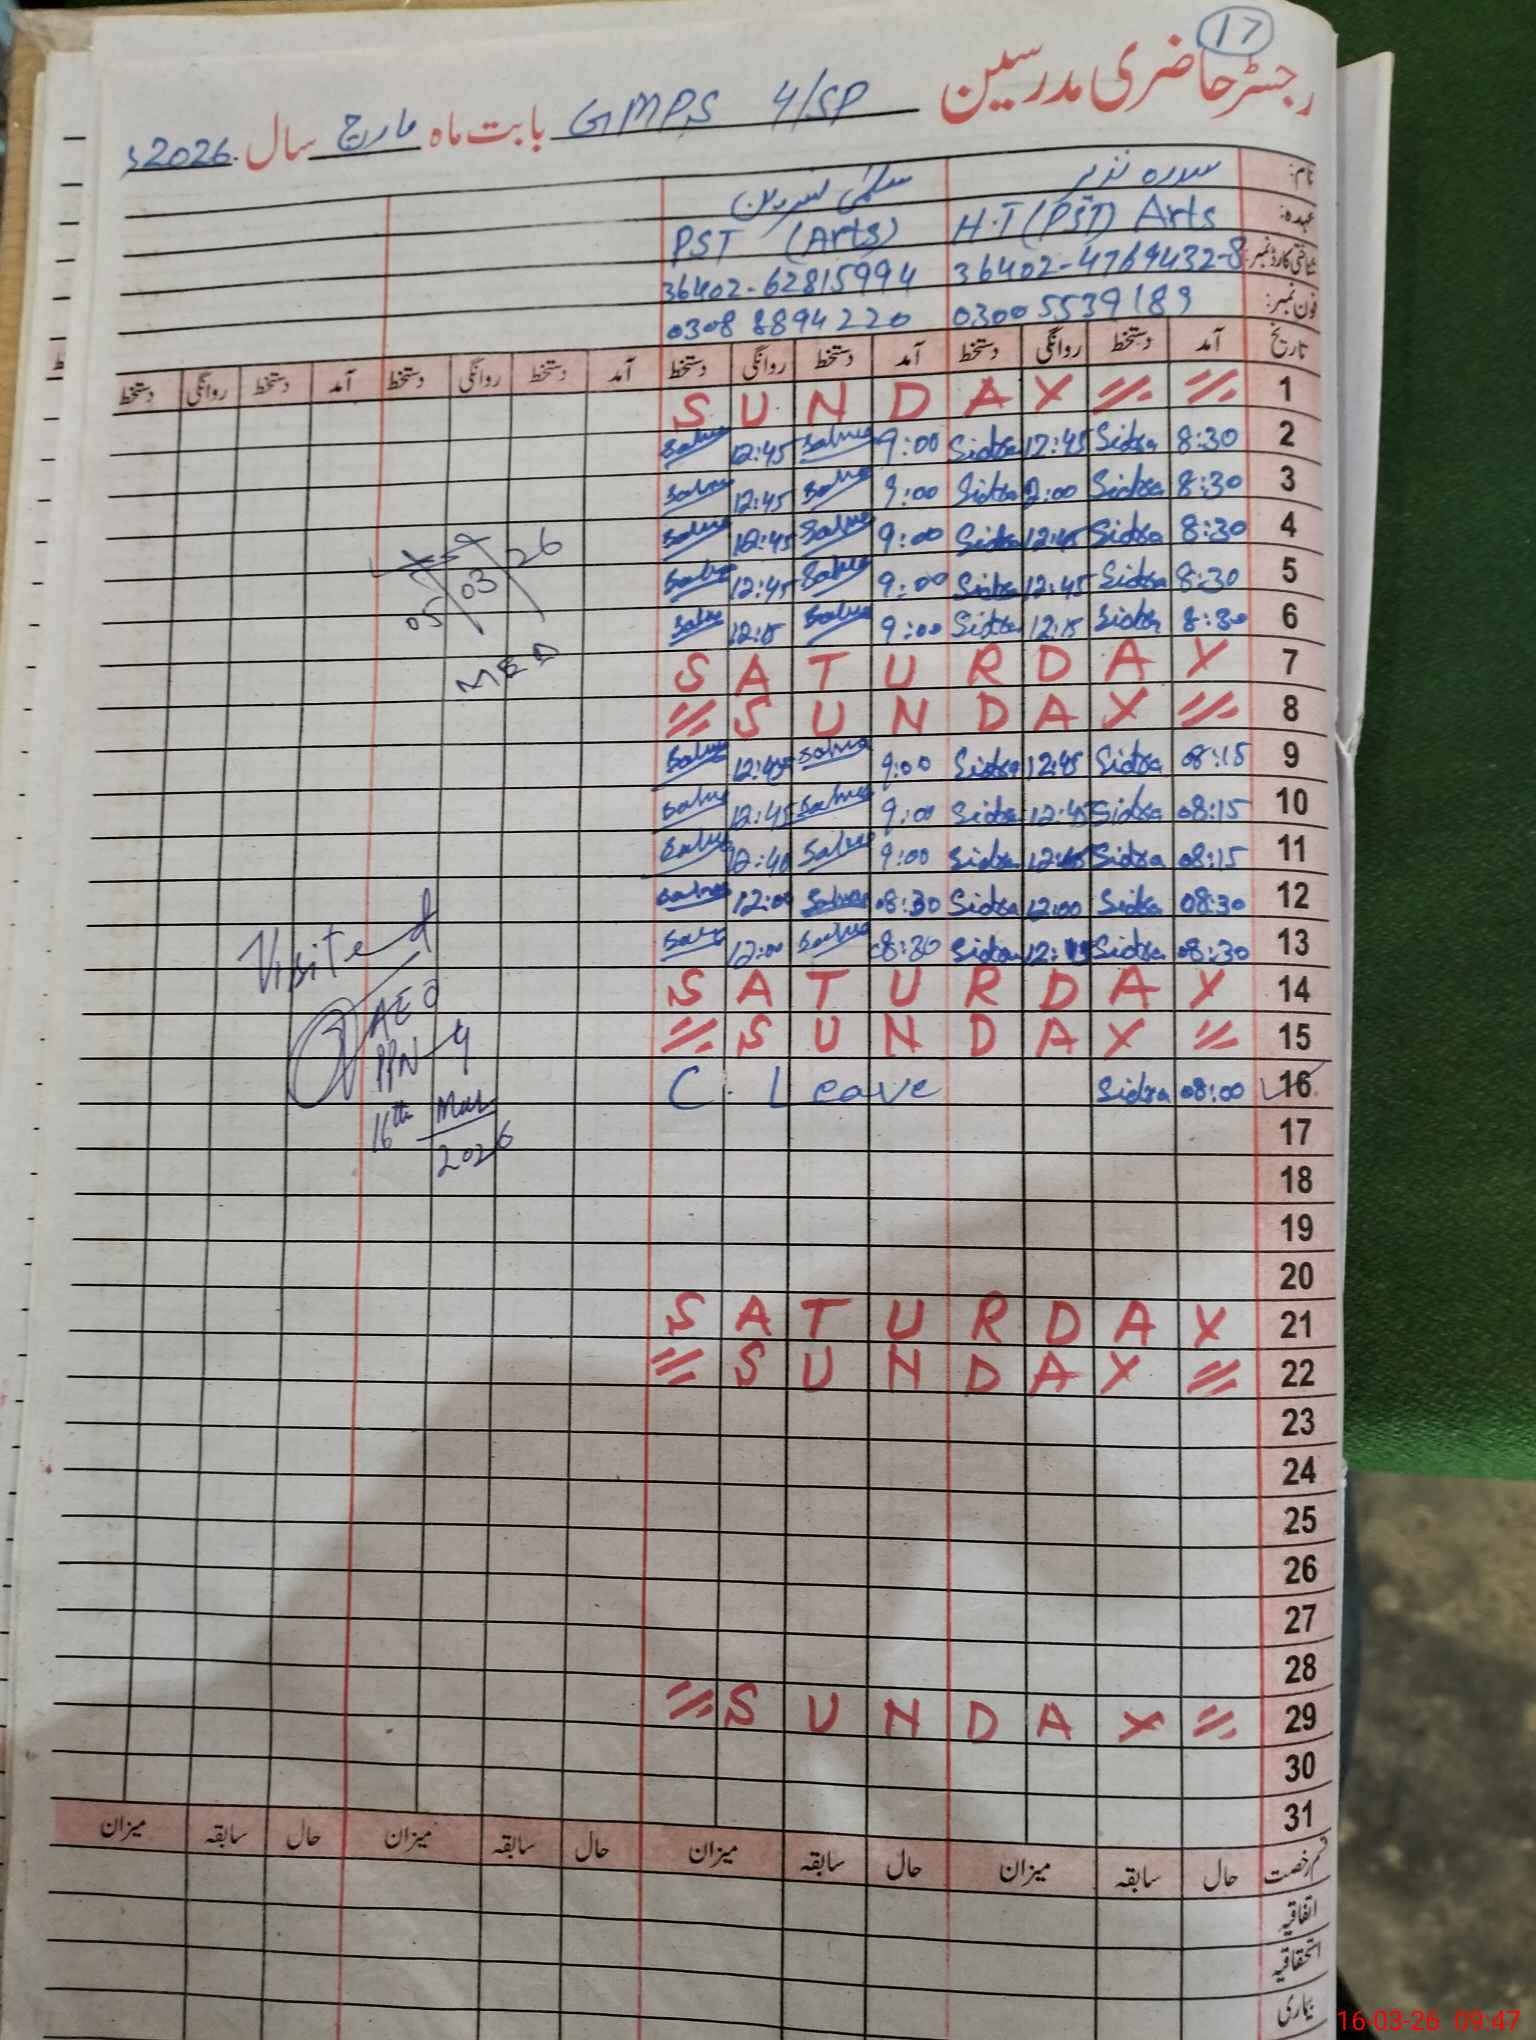 17
رجسٹر حاضری مدرسین GMPS 4/SP بابت ماہ مارچ سال 2026ء
نام: سدرہ نذیر سلمیٰ نسرین
عہدہ: H.T (PST) Arts PST (Arts)
شناختی کارڈ نمبر: 36402-4769432-8 36402-62815994
فون نمبر: 0300 5539189 0308 8894220
تاریخ آمد دستخط روانگی دستخط آمد دستخط روانگی دستخط آمد دستخط روانگی دستخط آمد دستخط روانگی دستخط
1 SUNDAY
2 8:30 Sidra 12:45 Sidra 9:00 Salma 12:45 Salma
3 8:30 Sidra 2:00 Sidra 9:00 Salma 12:45 Salma
4 8:30 Sidra 12:45 Sidra 9:00 Salma 12:45 Salma
5 8:30 Sidra 12:45 Sidra 9:00 Salma 12:45 Salma
6 8:30 Sidra 12:15 Sidra 9:00 Salma 12:15 Salma
05/03/26
MED
7 SATURDAY
8 SUNDAY
9 08:15 Sidra 12:45 Sidra 9:00 Salma 12:45 Salma
10 08:15 Sidra 12:45 Sidra 9:00 Salma 12:45 Salma
11 08:15 Sidra 12:45 Sidra 9:00 Salma 12:40 Salma
12 08:30 Sidra 12:00 Sidra 08:30 Salma 12:00 Salma
13 08:30 Sidra Sidra 08:30 Salma 12:00 Salma
14 SATURDAY
15 SUNDAY
16 08:00 Sidra C. Leave
Visited
AEO
PPN-4
16th Mar
2026
17
18
19
20
21 SATURDAY
22 SUNDAY
23
24
25
26
27
28
29 SUNDAY
30
31
قسم رخصت حال سابقہ میزان حال سابقہ میزان حال سابقہ میزان حال سابقہ میزان
اتفاقیہ
استحقاقیہ
بیماری
16-03-26 09:47